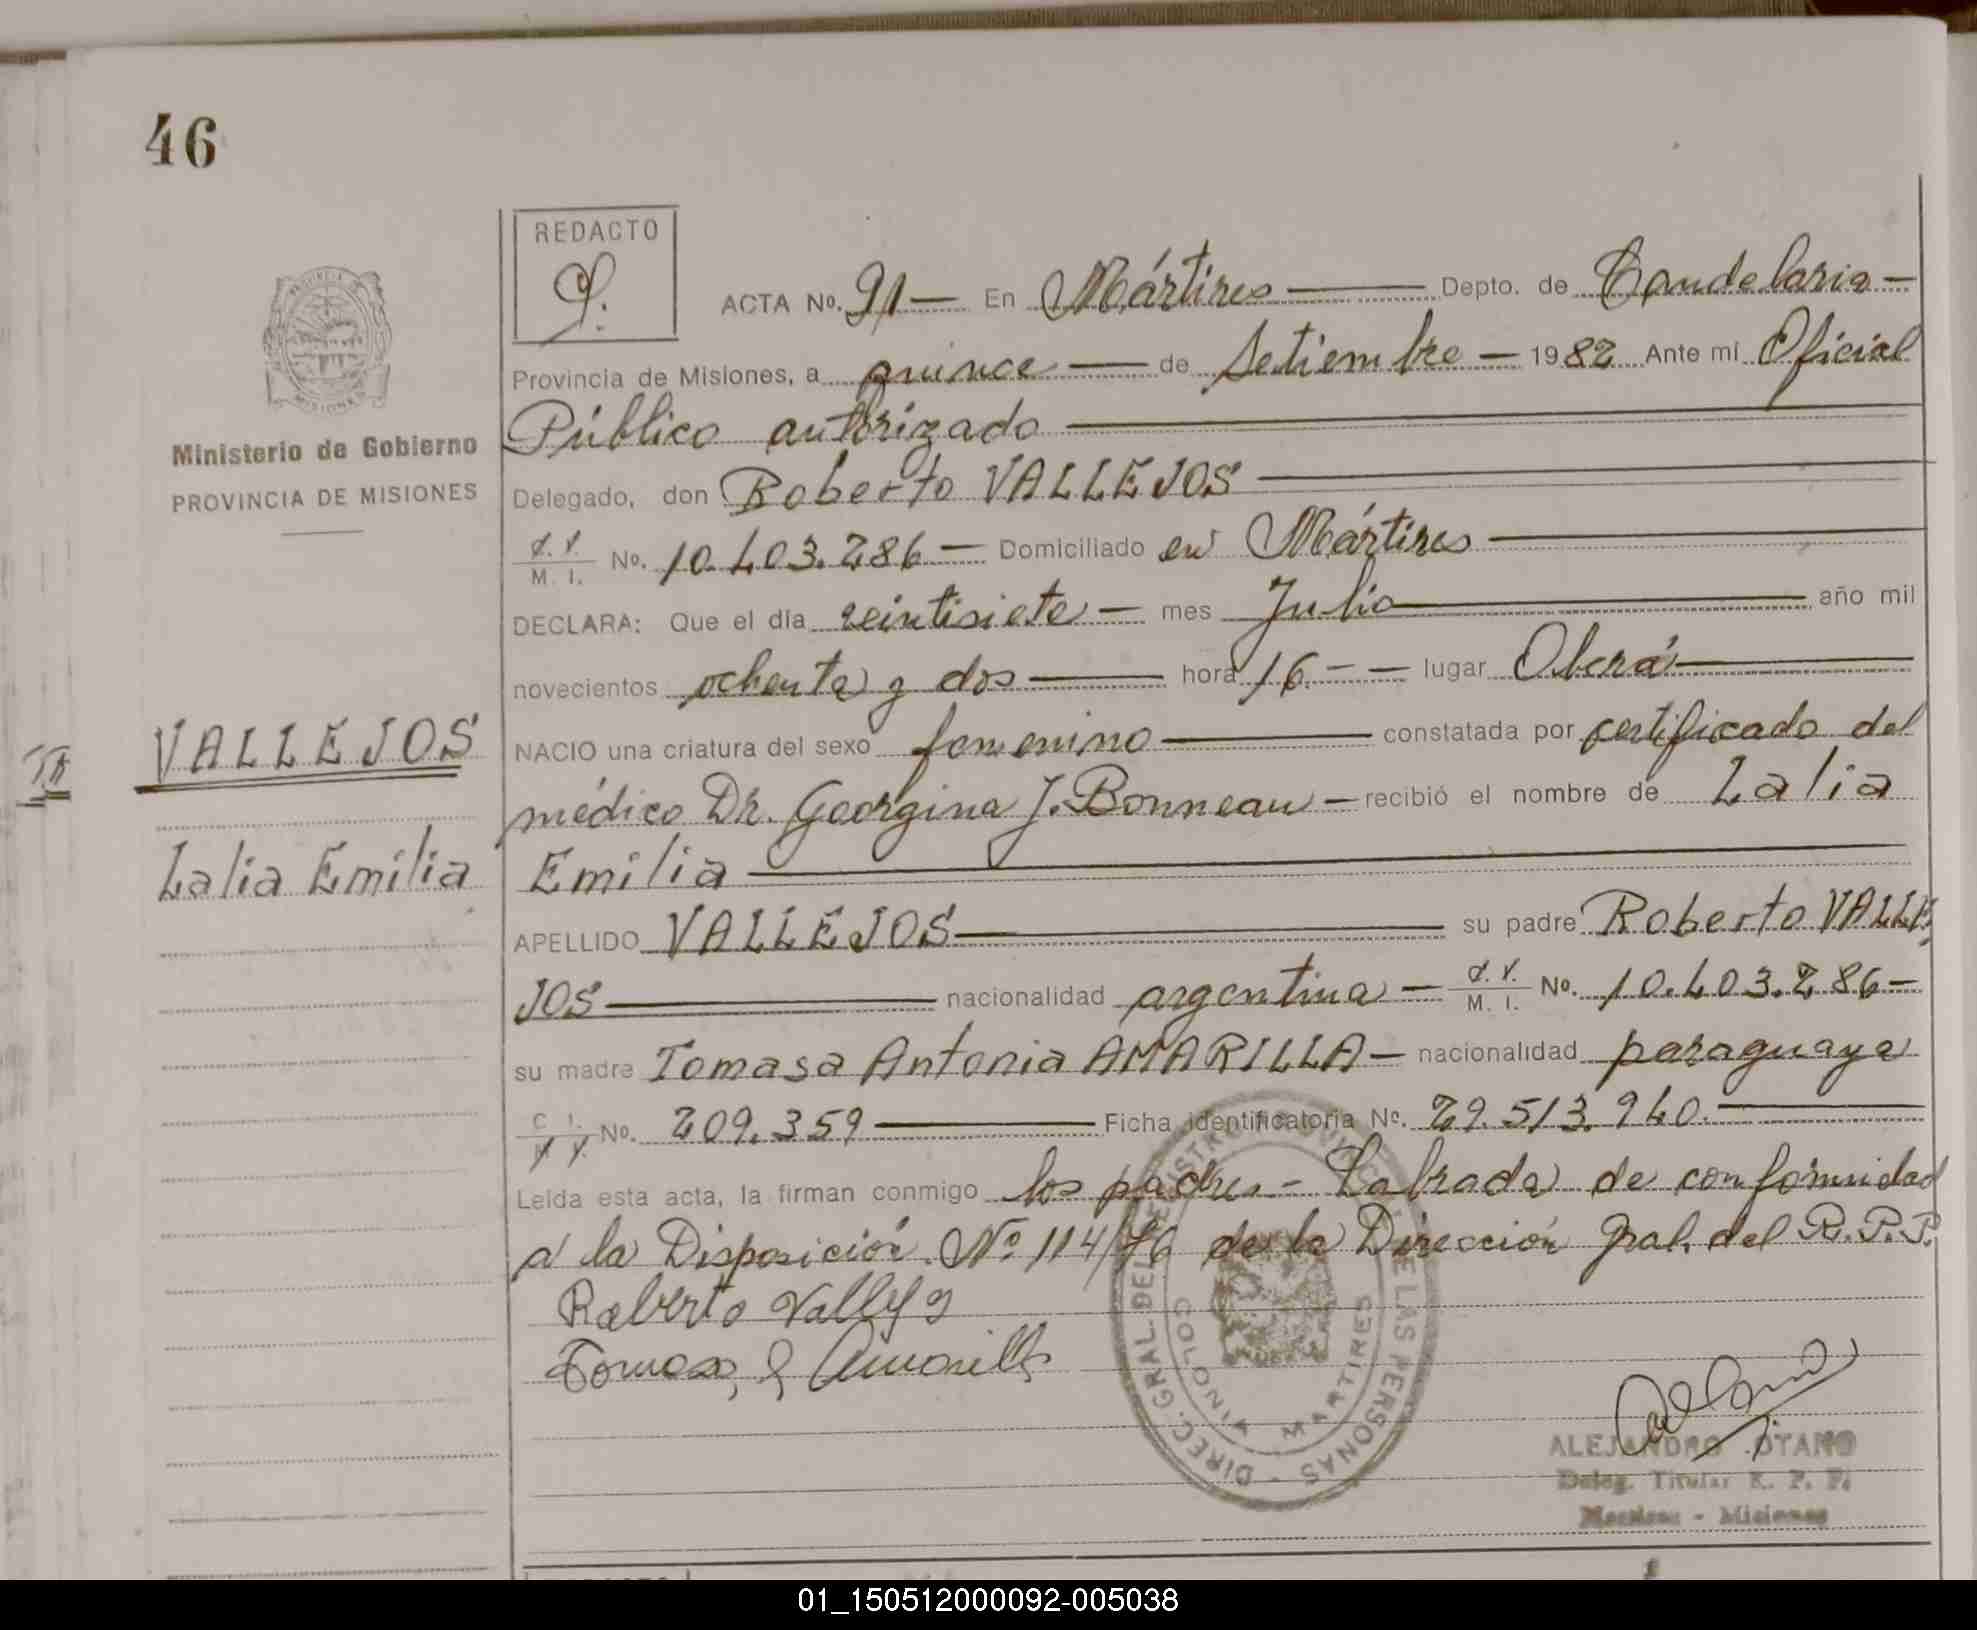 46
REDACTO
ACTA No. 91 — En Mártires — Depto. de Candelaria —
Provincia de Misiones, a quince — de Setiembre — 1982 Ante mi Oficial
Público autorizado
Ministerio de Gobierno
PROVINCIA DE MISIONES
Delegado, don Roberto VALLEJOS
M. I. No. 10.403.286 — Domiciliado en Mártires
DECLARA: Que el día veintisiete — mes Julio — año mil
novecientos ochenta y dos — hora 16 - - lugar Oberá
VALLEJOS
NACIO una criatura del sexo femenino — constatada por certificado del
médico Dr. Georgina J. Bonneau — recibió el nombre de Lalia
Lalia Emilia
Emilia
APELLIDO VALLEJOS — su padre Roberto VALLE
JOS — nacionalidad argentina — M. I. No. 10.403.286 —
su madre Tomasa Antonia AMARILLA — nacionalidad paraguaya
C. I. No. 209.359 — Ficha identificatoria No. 29.513.940.
Leída esta acta, la firman conmigo los padres - Labrada de conformidad
a la Disposición Nº 114/76 de la Dirección Gral. del R.P.P.
Roberto Vallejos
Tomasa Amarilla
DIREC. GRAL. DEL REGISTRO PROVINCIAL DE LAS PERSONAS
COLONIA MARTIRES
ALEJANDRO OTAÑO
Deleg. Titular R. P. P.
Martires - Misiones
01_150512000092-005038